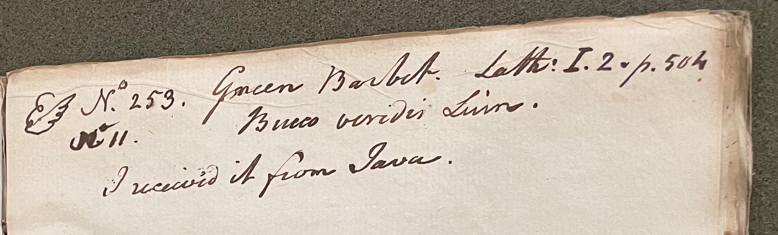 No. 253. Green Barbet. Lath: I. 2. p. 504
No 11. Bucco viridis Linn.
I receivd it from Java.